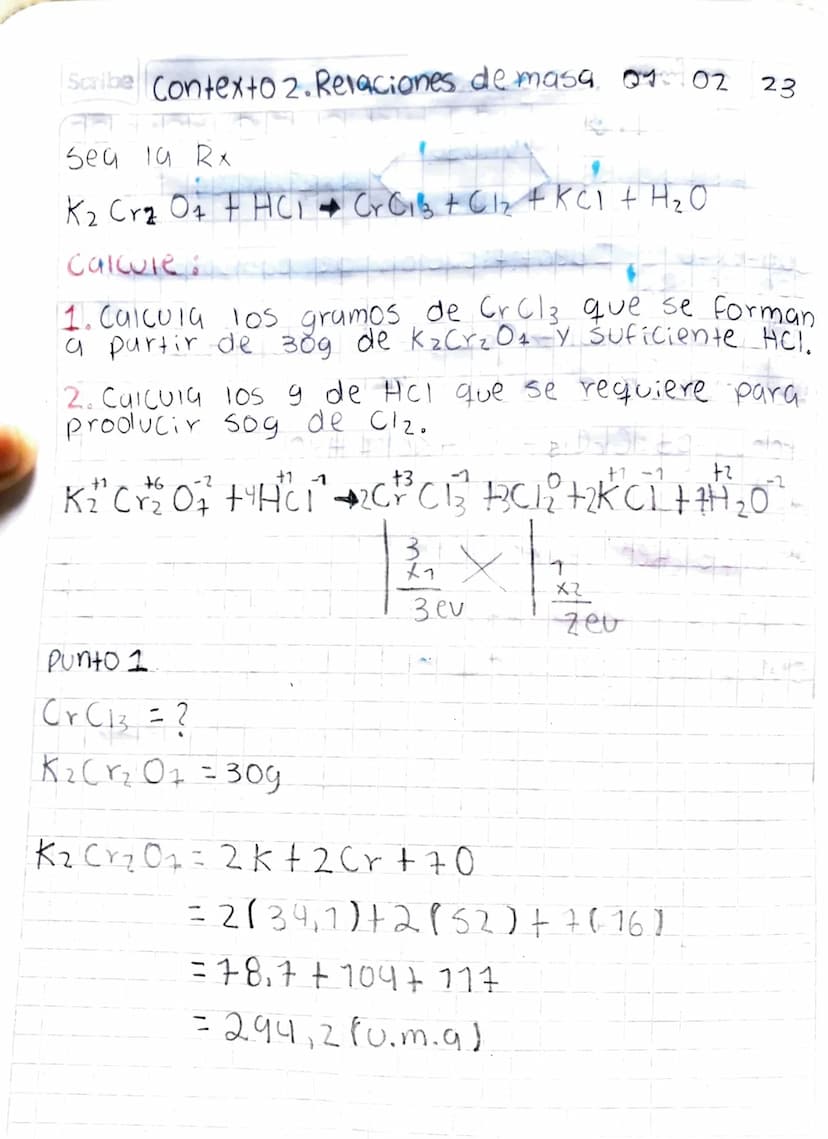 Scribe Contexto 2. Relaciones de masa 01 02 23
Sea la Rx
K2 Cr2 O7 + HCl → CrCl3 + Cl2 + KCl + H2O
Calcule:
1. Calcula los gramos de CrCl3 que se forman
a partir de 30g de K2Cr2O7 y suficiente HCl.
2. Calcula los g de HCl que se requiere para
producir 50g de Cl2.
K2+1 Cr2+6 O7-2 + 14H+1Cl-1 → 2Cr+3Cl3-1 + 3Cl20 + 2K+1Cl-1 + 7H2+2O-2
3 1
x1 x2
3ev 2ev
Punto 1
CrCl3 = ?
K2Cr2O7 = 30g
K2Cr2O7 = 2K + 2Cr + 7O
= 2(39,1) + 2(52) + 7(16)
= 78,7 + 104 + 117
= 294,2 (u.m.a)